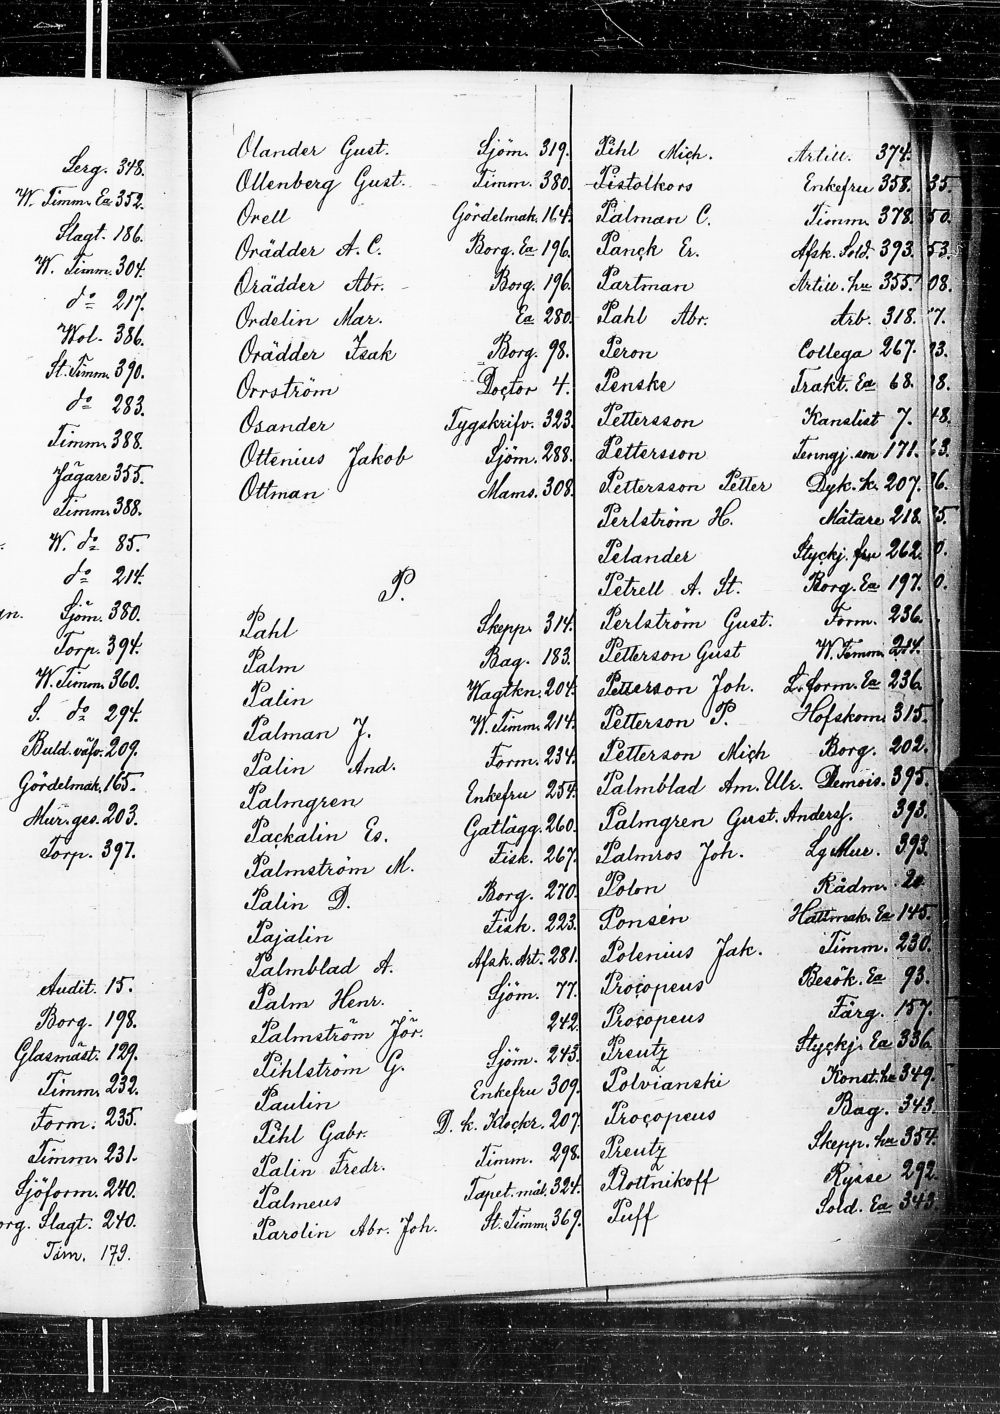 Serg. 348.
W. Timm. Ea 352.
Slagt. 186.
W. Timm. 304.
do 217.
Vol. 386.
St. Timm. 390.
do 283.
Timm. 388.
Jägare 355.
Timm. 388.
W. do 85.
do 214.
Sjöm. 380.
Torp. 394.
W. Timm. 360.
S. do 294.
Buld.väfv. 209.
Gördelmak. 165.
Mur.ges. 203.
Torp. 397.
Audit. 15.
Borg. 198.
Glasmäst. 129.
Timm. 232.
Form. 235.
Timm. 231.
Sjöform. 240.
Slagt. 240.
Tim. 179.
Olander Gust. Sjöm. 319.
Ollenberg Gust. Timm. 380.
Orell Gördelmak. 164.
Orädder A. C. Borg. Ea 196.
Orädder Abr. Borg. 196.
Ordelin Mar. Ea 280.
Orädder Isak Borg. 98.
Orrström Doctor 4.
Osander Tygskrifv. 323.
Ottenius Jakob Sjöm. 288.
Ottman Mams. 308.
P.
Pahl Skepp. 314.
Palm Bag. 183.
Palin Wagtkn. 204.
Palman J. W. Timm. 214.
Palin And. Form. 234.
Palmgren Enkefru 254.
Packalin Es. Gatlägg. 260.
Palmström M. Fisk. 267.
Palin D. Borg. 270.
Pajalin Fisk. 223.
Palmblad A. Afsk. Art. 281.
Palm Henr. Sjöm. 77.
Palmström Jör. 242.
Pihlström G. Sjöm. 243.
Paulin Enkefru 309.
Pihl Gabr. D. k. Klockr. 207.
Palin Fredr. Timm. 298.
Palmeus Tapet.mål. 324.
Parolin Abr. Joh. St. Timm. 369.
Pihl Mich. Artill. 374.
Pistolkors Enkefru 358.
Palman C. Timm. 378.
Panck Er. Afsk. Sold. 393.
Partman Artill. hu 355.
Pahl Abr. Arb. 318.
Peron Collega 267.
Penske Trakt. Ea 68.
Pettersson Kanslist 7.
Pettersson Tenngj. son 171.
Pettersson Petter Dyk. k. 207.
Perlström H. Mätare 218.
Pelander Styckj. fru 262.
Petrell A. St. Borg. Ea 197.
Perlström Gust. Form. 236.
Petterson Gust W. Timm. 214.
Petterson Joh. L. form. Ea 236.
Petterson P. Hofskom. 315.
Petterson Mich Borg. 202.
Palmblad An. Ulr. Demois. 395.
Palmgren Gust. Andersf. 393.
Palmros Joh. Lg Mur. 393.
Polon Rådm. 20.
Ponsén Hattmak. Ea 145.
Polenius Jak. Timm. 230.
Procopeus Besök. Ea 93.
Procopeus Färg. 157.
Preutz Styckj. Ea 336.
Polvianski Konst. hu 349.
Procopeus Bag. 343.
Preutz Skepp. hu 354.
Plottnikoff Rysse 292.
Puff Sold. Ea 343.